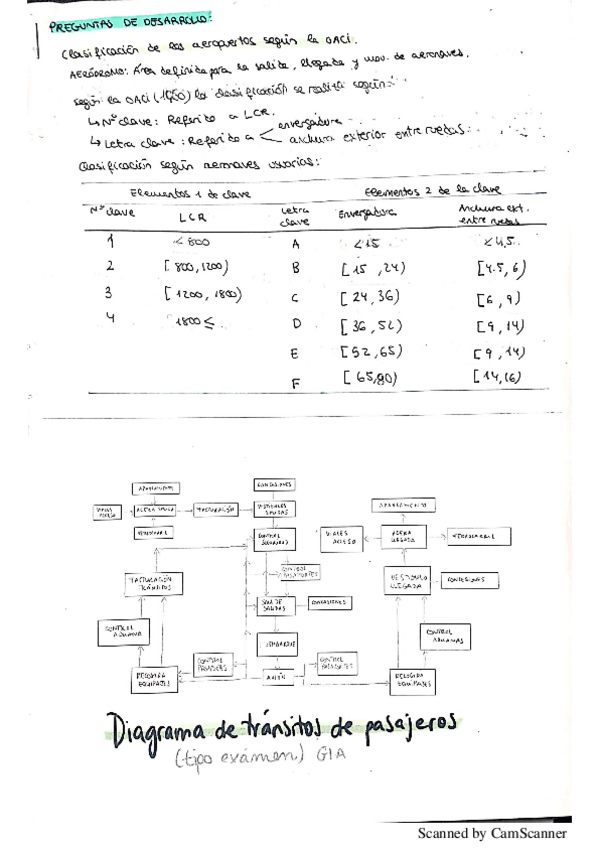 PREGUNTAS DE DESARROLLO:
Clasificación de los aeropuertos según la OACI.
AERÓDROMO: Área definida para la salida, llegada y mov. de aeronaves.
según la OACI (1960) la clasificación se realiza según:
↳ Nº clave: Referido a LCR.
↳ Letra clave: Referido a < envergadura
anchura exterior entre ruedas.
Clasificación según aeronaves usuarias:
Elementos 1 de clave Elementos 2 de la clave
Nº clave LCR Letra clave Envergadura Anchura ext. entre ruedas
1 <800 A <15 <4,5
2 [800,1200) B [15,24) [4.5,6)
3 [1200,1800) C [24,36) [6,9)
4 1800≤ D [36,52) [9,14)
E [52,65) [9,14)
F [65,80) [14,16)
APARCAMIENTO CONCESIONES APARCAMIENTO
VIALES ACCESO ACERA SALIDA FACTURACIÓN VESTÍBULO SALIDAS VIALES ACCESO ACERA LLEGADA FERROCARRIL
FERROCARRIL CONTROL SEGURIDAD
CONTROL PASAPORTES
FACTURACIÓN TRÁNSITOS VESTÍBULO LLEGADA CONCESIONES
SALA DE SALIDAS CONCESIONES
CONTROL ADUANA EMBARQUE CONTROL ADUANAS
CONTROL PASAPORTES CONTROL PASAPORTES
RECOGIDA EQUIPAJES AVIÓN RECOGIDA EQUIPAJES
Diagrama de tránsitos de pasajeros
(tipo exámen) GIA
Scanned by CamScanner